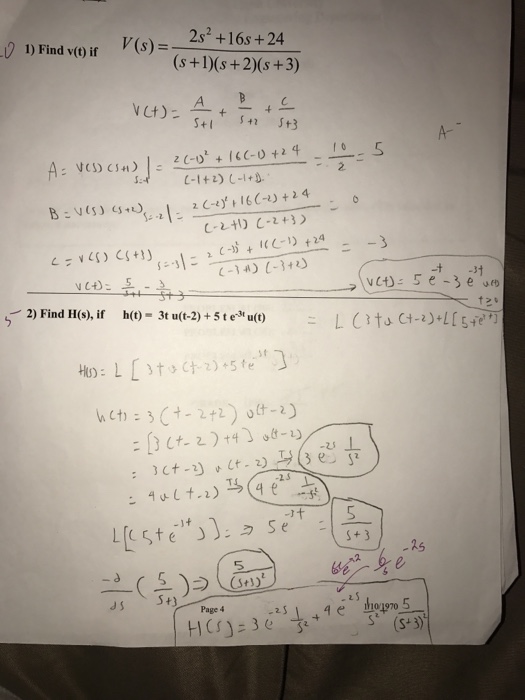 1) Find v(t) if V(s) = (2s² + 16s + 24) / ((s+1)(s+2)(s+3))
V(t) = A/(s+1) + B/(s+2) + C/(s+3)
A-
A = V(s) (s+1) | s=-1 = (2(-1)² + 16(-1) + 24) / ((-1+2)(-1+3)) = 10/2 = 5
B = V(s) (s+2) s=-2 | = (2(-2)² + 16(-2) + 24) / ((-2+1)(-2+3)) = 0
C = V(s) (s+3) s=-3 | = (2(-3)² + 16(-3) + 24) / ((-3+1)(-3+2)) = -3
V(t) = 5/(s+1) - 3/(s+3)
V(t) = 5e^-t - 3e^-3t u(t)
t≥0
5 2) Find H(s), if h(t) = 3t u(t-2) + 5 t e^-3t u(t)
= L(3tu(t-2) + L[5te^-3t]
H(s) = L[3tu(t-2) + 5te^-3t]
h(t) = 3(t-2+2) u(t-2)
= [3(t-2)+4] u(t-2)
= 3(t-2) u(t-2) → 3e^-2s 1/s²
= 4u(t-2) → 4e^-2s
L[(5te^-3t)] = ⇒ 5e^-3t = 5/(s+3)
-d/ds (5/(s+3)) ⇒ 5/(s+3)²
6/s e^-2s
Page 4
H(s) = 3e^-2s 1/s² + 4e^-2s 5/(s+3)²